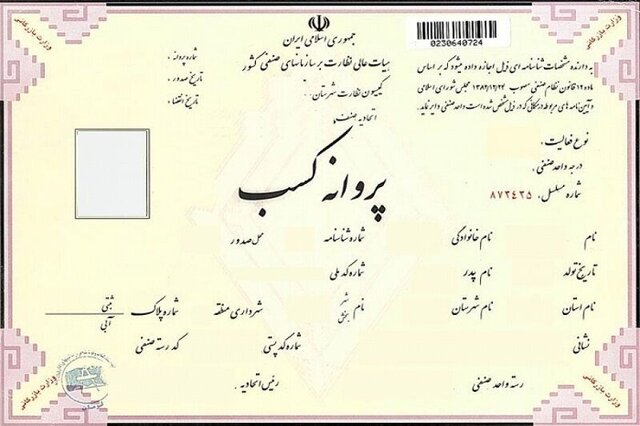 جمهوری اسلامی ایران
هیات عالی نظارت بر سازمانهای صنفی کشور
کمیسیون نظارت شهرستان
اتحادیه صنف
0230640724
به دارنده مشخصات شناسنامه ای ذیل اجازه داده میشود که بر اساس
ماده ۱۲ قانون نظام صنفی مصوب ۱۳۸۲/۱۲/۲۴ مجلس شورای اسلامی
و آیین نامه های مربوطه در مکانی که در ذیل مشخص شده است واحد صنفی دایر نماید.
شماره پروانه :
تاریخ صدور :
تاریخ انقضاء :
نوع فعالیت :
درجه واحد صنفی :
شماره مسلسل : ۸۷۳۴۳۵
پروانه کسب
نام نام خانوادگی شماره شناسنامه محل صدور
تاریخ تولد نام پدر شماره کد ملی
نام استان نام شهرستان نام شهر بخش شهرداری منطقه شماره پلاک ثبتی آبی
نشانی شماره کد پستی کد رسته صنفی
رسته واحد صنفی رئیس اتحادیه :
وزارت بازرگانی
وزارت بازرگانی
وزارت بازرگانی
وزارت بازرگانی